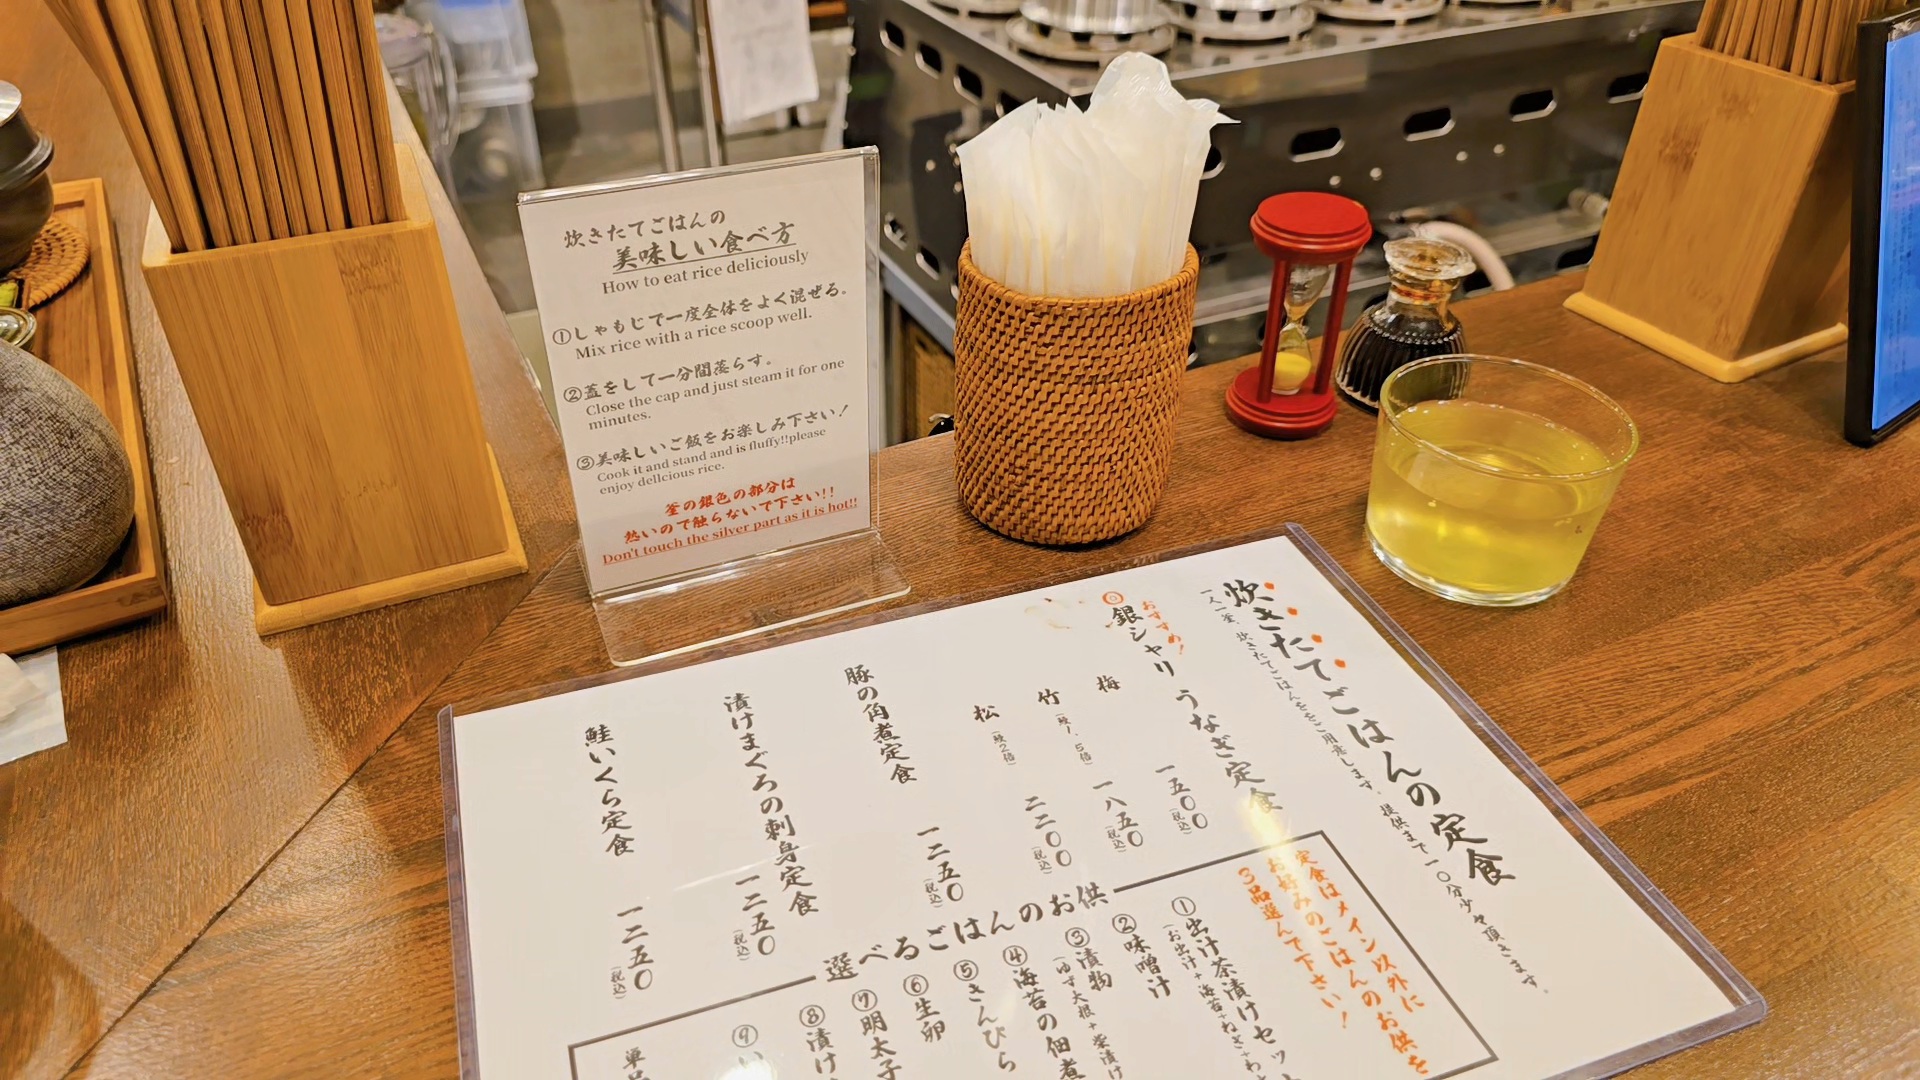 炊きたてごはんの
美味しい食べ方
How to eat rice deliciously
①しゃもじで一度全体をよく混ぜる。
Mix rice with a rice scoop well.
②蓋をして一分間蒸らす。
Close the cap and just steam it for one
minutes.
③美味しいご飯をお楽しみ下さい！
Cook it and stand and is fluffy!!please
enjoy delicious rice.
釜の銀色の部分は
熱いので触らないで下さい!!
Don't touch the silver part as it is hot!!
炊きたてごはんの定食
一人一釜、炊きたてごはんをご用意します。提供まで一〇分少々頂きます。
おすすめ！
銀シャリ うなぎ定食
梅 一五〇〇（税込）
竹（鰻1.5倍） 一八五〇（税込）
松（鰻2倍） 二二〇〇（税込）
豚の角煮定食 一二五〇（税込）
漬けまぐろの刺身定食 一二五〇（税込）
鮭いくら定食 一二五〇（税込）
定食はメイン以外に
お好みのごはんのお供を
3品選んで下さい！
選べるごはんのお供
①出汁茶漬けセット
（お出汁+海苔+ねぎ+わ
②味噌汁
③漬物
（ゆず大根+柴漬け
④海苔の佃煮
⑤きんぴら
⑥生卵
⑦明太子
⑧漬け
⑨い
単品